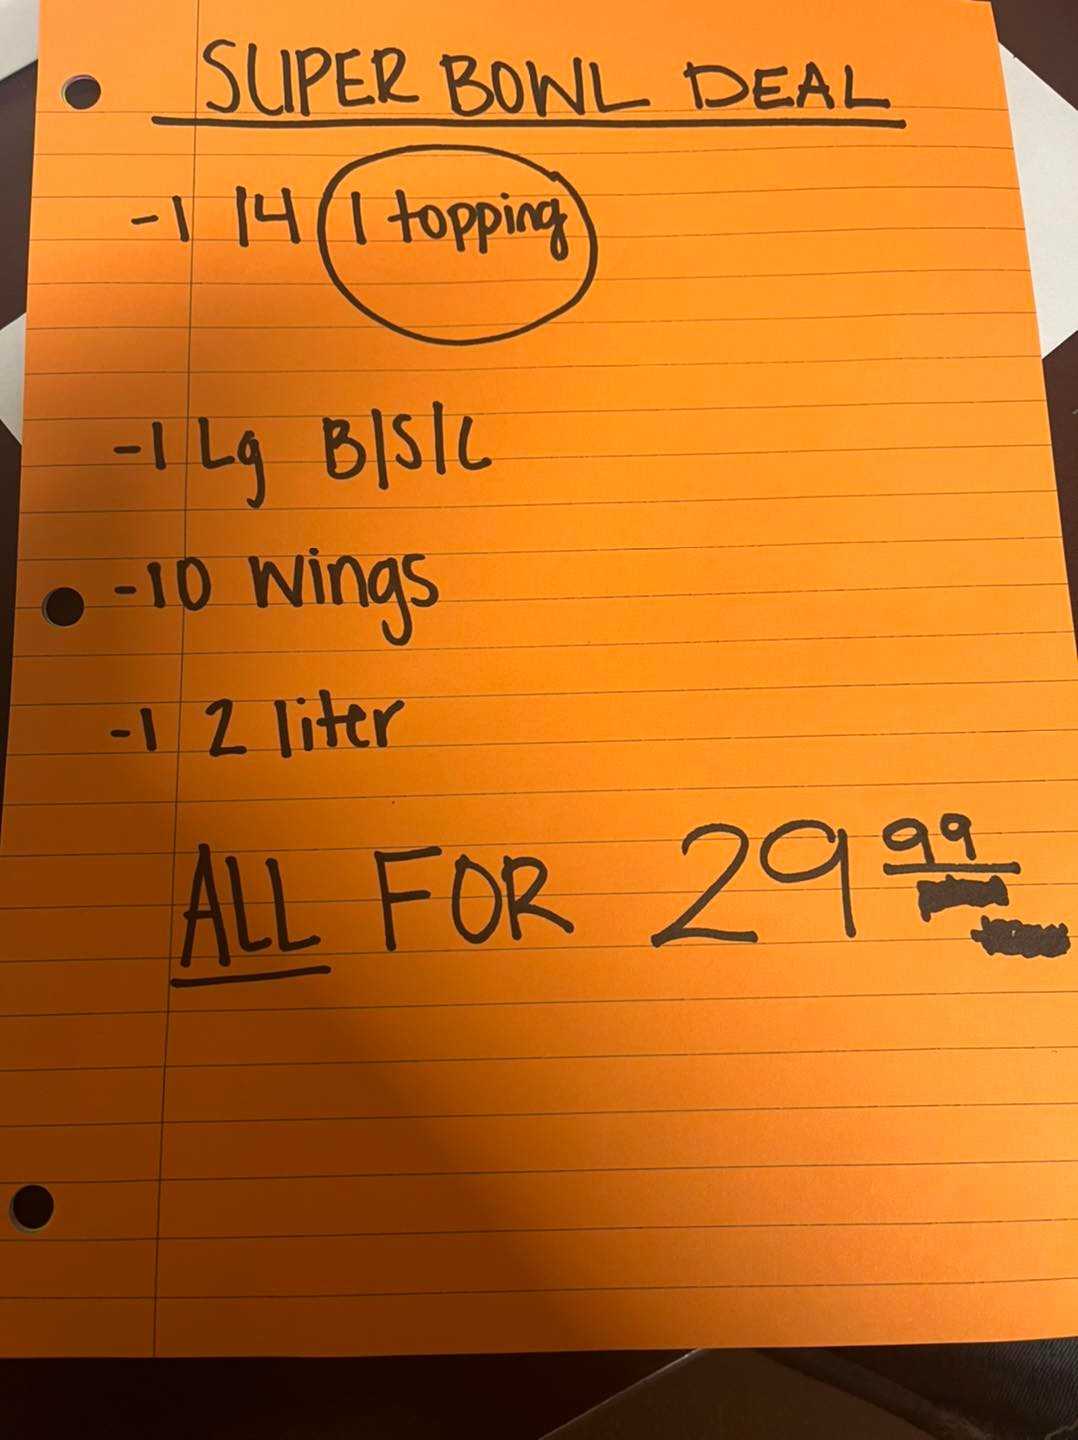 SUPER BOWL DEAL
-1 14 1 topping
-1 Lg B/S/C
-10 wings
-1 2 liter
ALL FOR 29 99